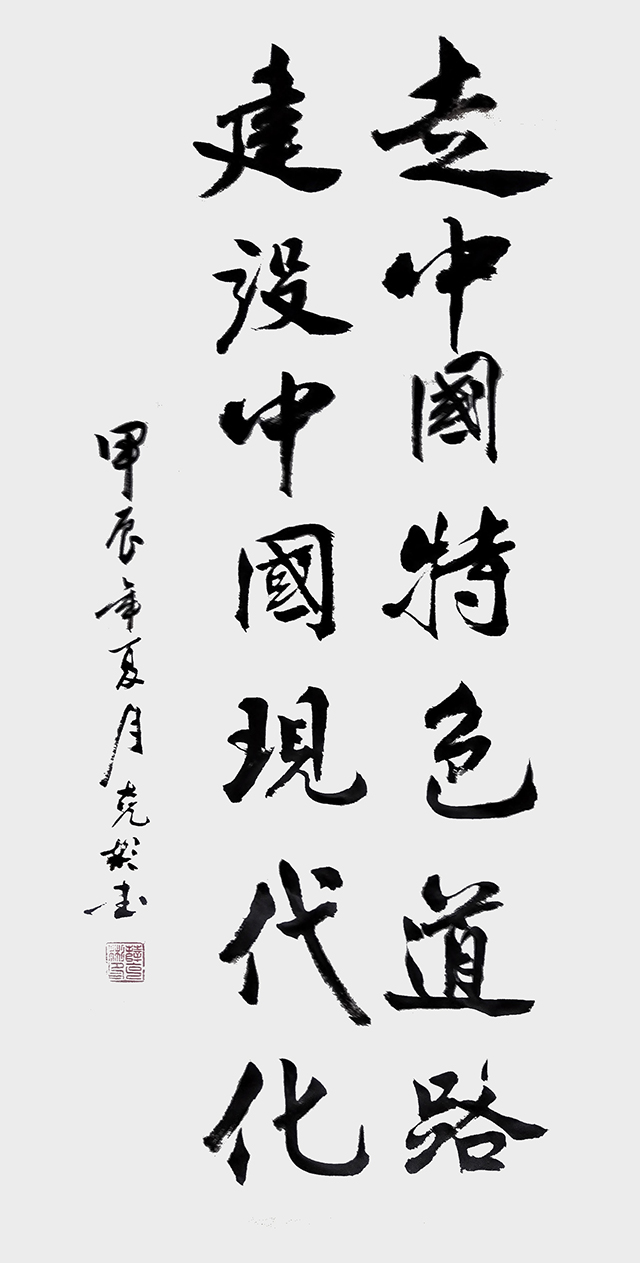 走中國特色道路
建设中國現代化
甲辰年夏月克彬书